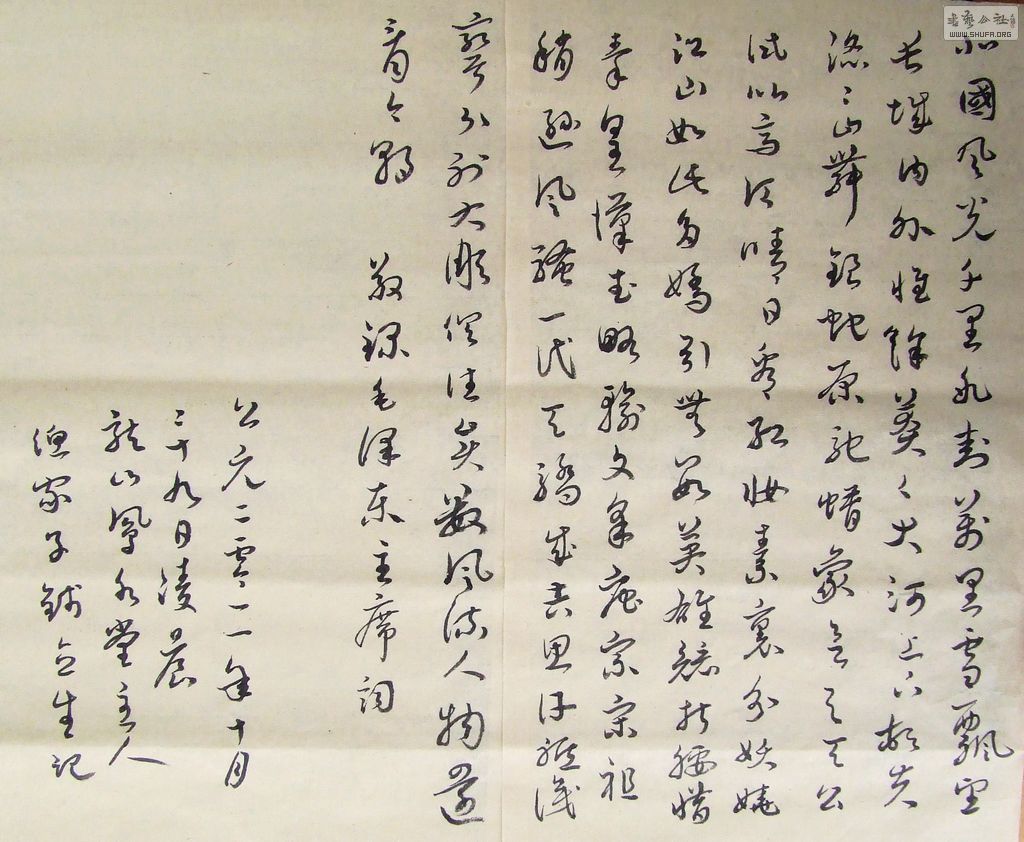 書藝公社
WWW.SHUFA.ORG
北國风光千里冰封万里雪飄望
长城内外惟餘莽〻大河上下頓失
滔〻山舞銀蛇原馳蜡象欲与天公
試比高須晴日看紅妆素裹分妖嬈
江山如此多嬌引無數英雄競折腰惜
秦皇漢武略輸文采唐宗宋祖
稍遜风騷一代天驕成吉思汗祇識
彎弓射大雕俱往矣數风流人物還
看今朝 敬録毛澤东主席詞
公元二零一一年十月
二十九日凌晨
龍山鳳水堂主人
漁家子 生記